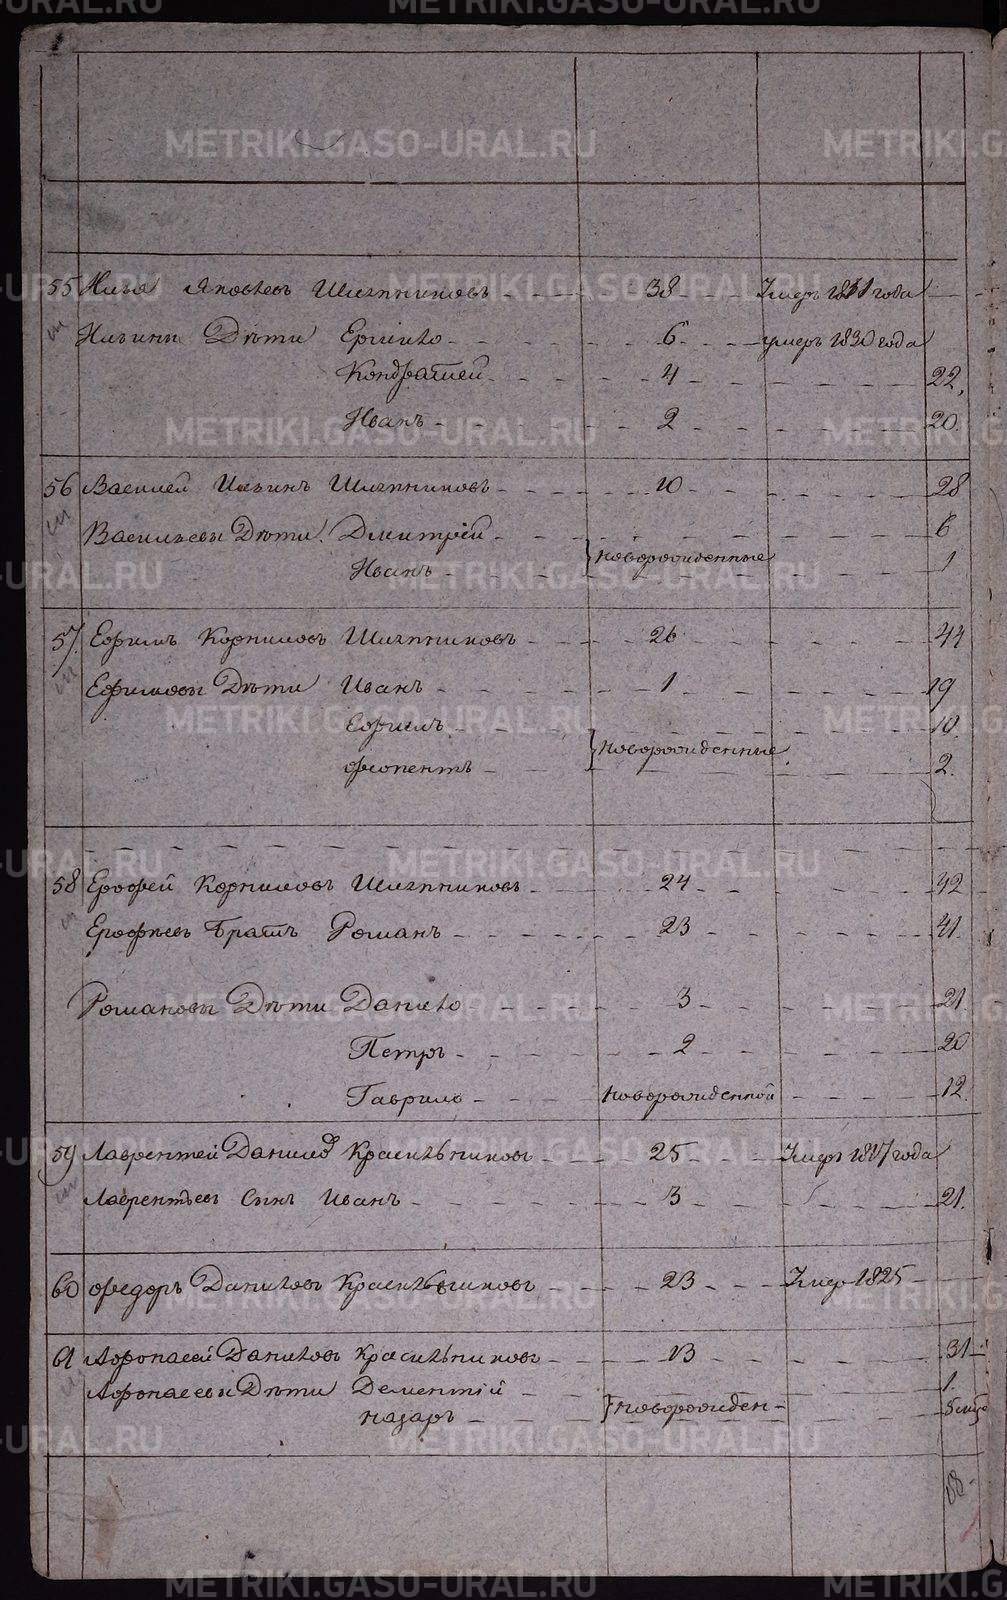 55 Илья Яковлевъ Шляпниковъ 38 Умеръ 1831 года
Ильины Дѣти Ермило 6 умеръ 1830 года
Кондратей 4 22,
Иванъ 2 20.
56 Василей Ильинъ Шляпниковъ 10 28
Васильевы Дѣти: Дмитрей 6
Иванъ новорожденные 1
57. Ефимъ Корниловъ Шляпниковъ 26 44
Ефимовы Дѣти Иванъ 1 19
Ефимъ 10.
новорожденные 2.
58 Ерофей Корниловъ Шляпниковъ 24 42
Ерофѣевъ Братъ Романъ 23 41.
Романовы Дѣти Данило 3 21.
Петръ 2 20
Гаврило новорожденной 12.
59 Лаврентей Данилов Красильниковъ 25 Умеръ 1817 года
Лаврентьевъ Сынъ Иванъ 3 21.
60 Федоръ Даниловъ Красильниковъ 23 Умер 1825
61 Афонасей Даниловъ Красильниковъ 13 31
Афонасевы Дѣти Дементій 1.
Назаръ новорожден 5 мѣс
METRIKI.GASO-URAL.RU